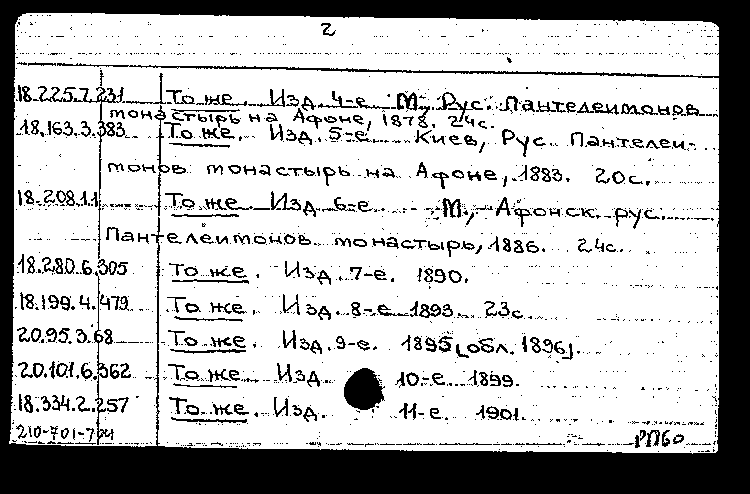 2
18.225.7.231 То же. Изд. 4-е М., Рус. Пантелеимонов
монастырь на Афоне, 1878. 24с.
18.163.3.383 То же. Изд. 5-е Киев, Рус. Пантелеи-
монов монастырь на Афоне, 1883. 20с.
18.208.1.1 То же. Изд 6-е М., Афонск. рус.
Пантелеимонов монастырь, 1886. 24с.
18.280.6.305 То же. Изд. 7-е. 1890.
18.199.4.479 То же. Изд. 8-е 1893. 23с.
20.95.3.68 То же. Изд. 9-е. 1895 [обл. 1896].
20.101.6.362 То же. Изд. 10-е 1899.
18.334.2.257 То же. Изд. 11-е. 1901.
210-701-704 РП60